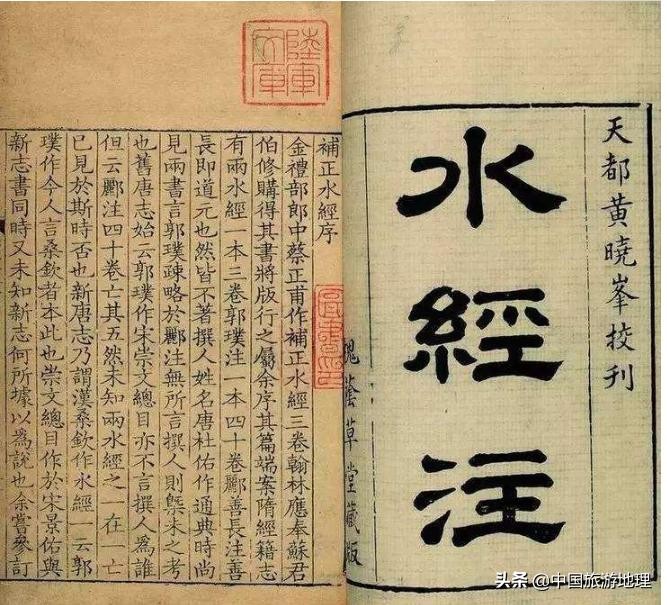 天都黄曉峯挍刊
水經注
槐蔭草堂藏版
陸軍
文庫
補正水經序
金禮部郎中蔡正甫作補正水經三卷翰林應奉蘇君
伯修購得其書將版行之屬余序其篇端案隋經籍志
有兩水經一本三卷郭璞注一本四十卷酈善長注善
長即道元也然皆不著撰人姓名唐杜佑作通典時尚
見兩書言郭璞疎略於酈注無所言撰人則槩未之考
也舊唐志始云郭璞作宋崇文總目亦不言撰人爲誰
但云酈注四十卷亡其五然未知兩水經之一在一亡
已見於斯時否也新唐志乃謂漢桑欽作水經 云郭
璞作今人言桑欽者本此也崇文總目作於宋景佑與
新志書同時又未知新志何所據以爲說也余嘗參訂
头条 @中国旅游地理